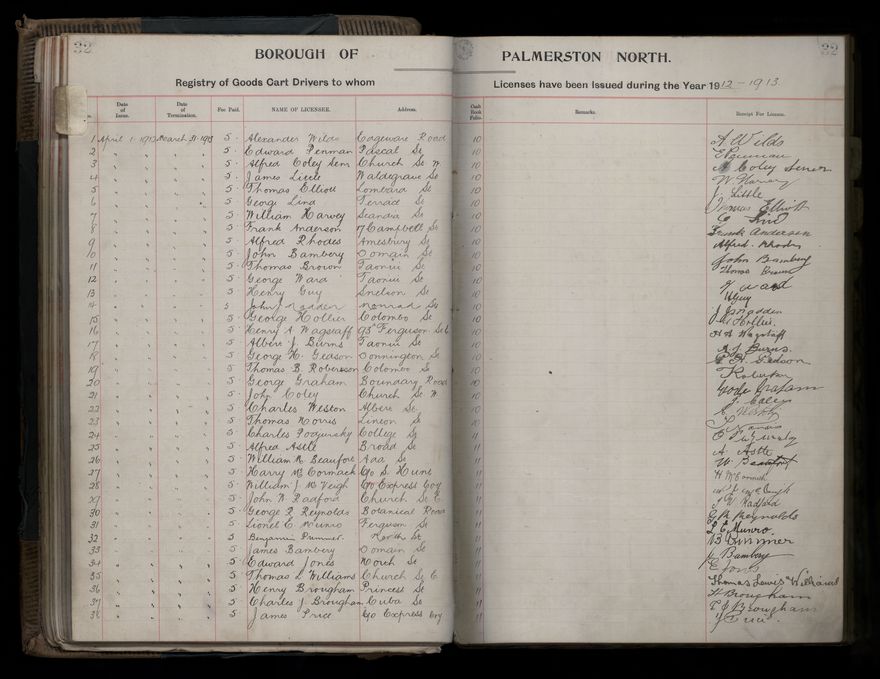 32 32
BOROUGH OF PALMERSTON NORTH.
Registry of Goods Cart Drivers to whom Licenses have been Issued during the Year 1912-1913.
No. Date of Issue. Date of Termination. Fee Paid. NAME OF LICENSEE. Address. Cash Book Folio. Remarks. Receipt For License.
1 April 1. 1912 March 31. 1913 5 · Alexander Wilds Road 10 A Wilds
2 " " " " 5 · Edward Penman Pascal St 10 E Penman
3 " " " " 5 · Alfred Coley Senr Church St W 10 A Coley Senr
4 " " " " 5 · James Little Waldegrave St 10 W Harvey
5 " " " " 5 · Thomas Elliott Lombard St 10 J. Little
6 " " " " 5 · George Lind Terrace St 10 Thomas Elliott
7 " " " " 5 · William Harvey Scandia St 10 G Lind
8 " " " " 5 · Frank Anderson 17 Campbell St 10 Frank Anderson
9 " " " " 5 · Alfred Rhodes Amesbury St 10 Alfred Rhodes
10 " " " " 5 · John Bambery Domain St 10 John Bambery
11 " " " " 5 · Thomas Brown Taonui St 10 Thomas Brown
12 " " " " 5 · George Ward Taonui St 10 G Ward
13 " " " " 5 · Henry Guy Snelson St 10 H Guy
14 " " " " 5 John J. Madden St 10 J J Madden
15 " " " " 5 · George Hollier Colombo St 10 G Hollier.
16 " " " " 5 · Henry A Wagstaff 95 Ferguson St 10 H A Wagstaff
17 " " " " 5 · Albert J. Burns Taonui St 10 A J Burns.
18 " " " " 5 · George H. Gedson Donnington St 10 G H Gedson
19 " " " " 5 · Thomas B Robertson Colombo St 10
20 " " " " 5 · George Graham Boundary Road 10 Graham
21 " " " " 5 · John Coley Church St W 10 J. Coley
22 " " " " 5 · Charles Weston Albert St 10
23 " " " " 5 · Thomas Norris Linton St 10
24 " " " " 5 · Charles College St 11
25 " " " " 5 · Alfred Astle Broad St 11 A Astle
26 " " " " 5 · William R Beaufort Ada St 11 W Beaufort
27 " " " " 5 · Harry McCormack C/o S. Hunt 11 H McCormack
28 " " " " 5 · William J McVeigh C/o Express Coy 11
29 " " " " 5 · John W Radford Church St E 11 J W Radford
30 " " " " 5 · George R Reynolds Botanical Road 11 G R Reynolds
31 " " " " 5 · Lionel C Munro Ferguson St 11 L C Munro
32 " " " " 5 Benjamin North St 11
33 " " " " 5 · James Bambery Domain St 11 J Bambery
34 " " " " 5 · Edward Jones North St 11 E Jones
35 " " " " 5 · Thomas L Williams Church St E 11 Thomas Lewis Williams
36 " " " " 5 · Henry Brougham Princess St 11 H Brougham
37 " " " " 5 · Charles J Brougham Cuba St 11 C J Brougham
38 " " " " 5 James Price C/o Express Coy 11 J Price.